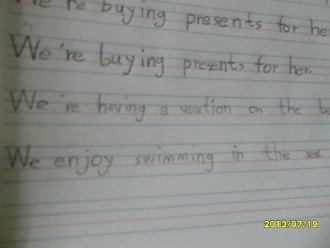 We're buying presents for her
We're buying presents for her.
We're having a vacation on the
We enjoy swimming in the sea
2013/07/19